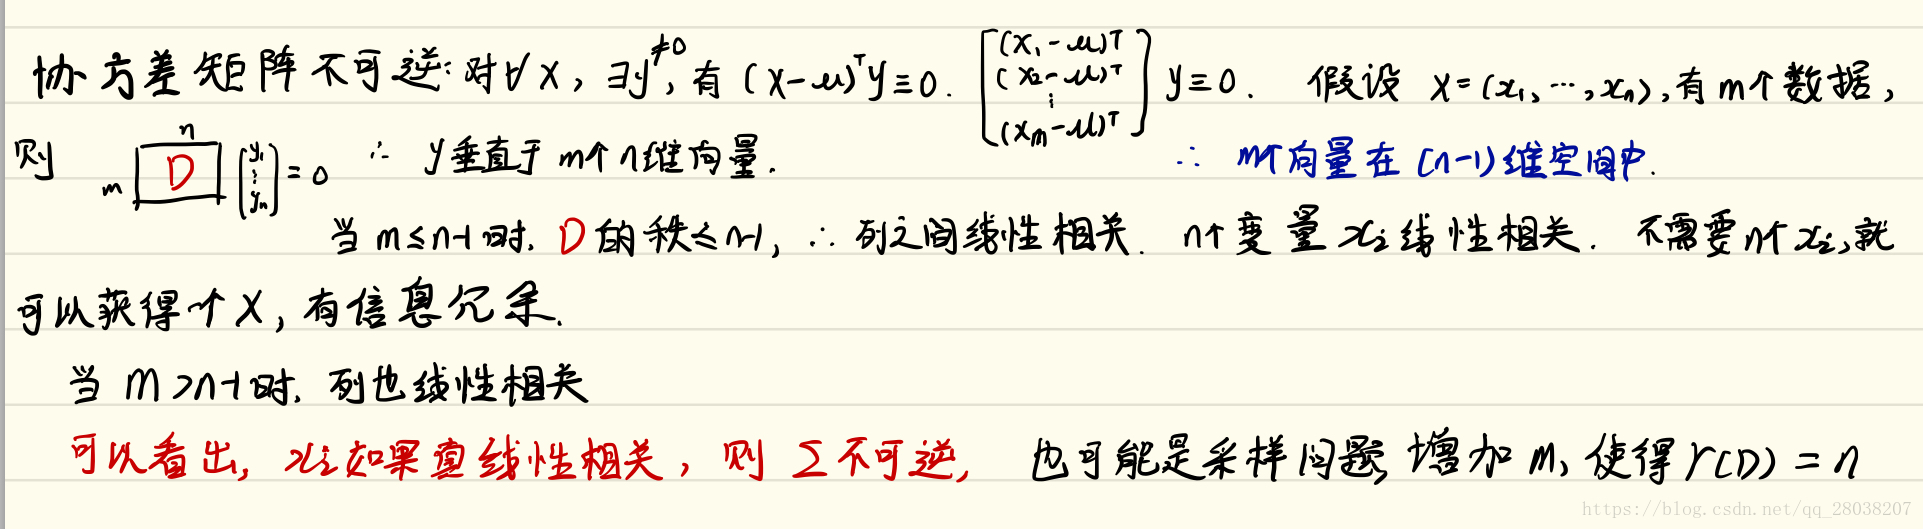 协方差矩阵不可逆: 对∀X, ∃y≠0, 有 (X-μ)ᵀy≡0. [(X₁-μ)ᵀ (X₂-μ)ᵀ ⋮ (Xm-μ)ᵀ] y≡0. 假设 X=(x₁, ⋯, xn), 有m个数据,
则 m n D [y₁ ⋮ yn] = 0 ∴ y垂直于m个n维向量. ∴ m个向量在(n-1)维空间中.
当m≤n-1时, D的秩≤n-1, ∴ 列之间线性相关. n个变量xᵢ线性相关. 不需要n个xᵢ, 就
可以获得个X, 有信息冗余.
当 m>n-1时, 列也线性相关
可以看出, xᵢ如果真线性相关, 则 Σ不可逆, 也可能是采样问题, 增加m, 使得r(D)=n
https://blog.csdn.net/qq_28038207